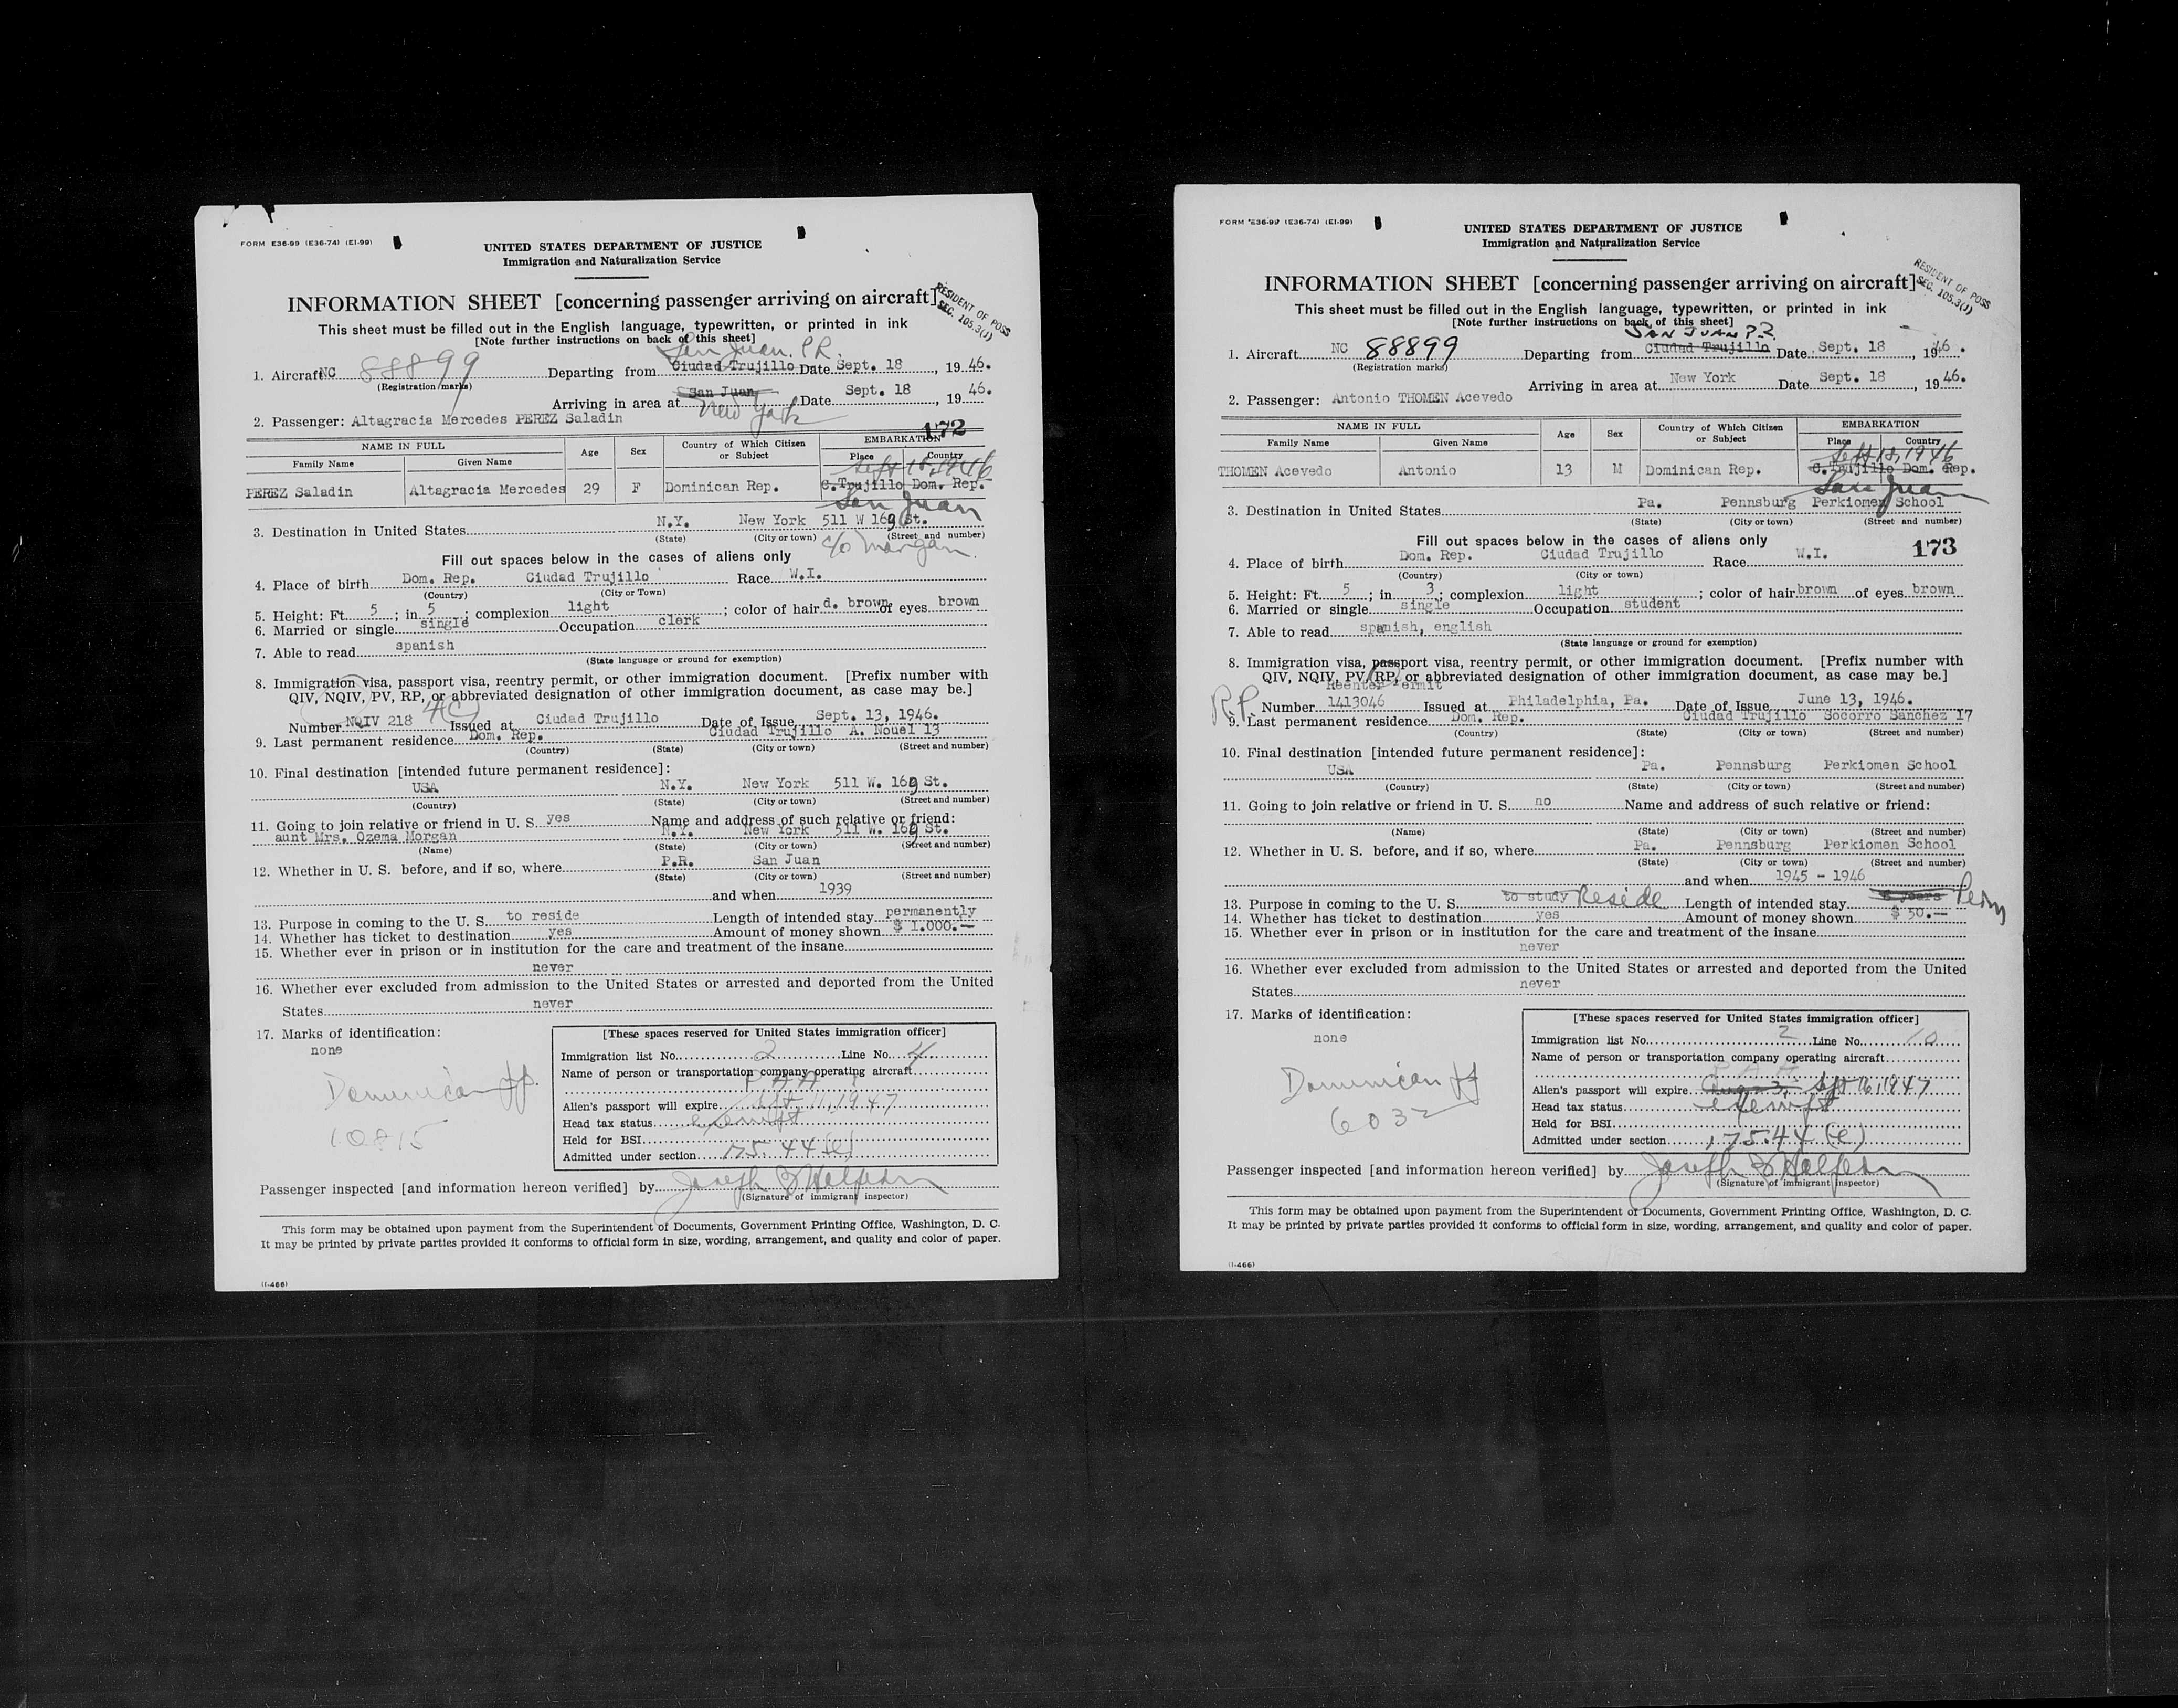 FORM E36-99 (E36-74) (EI-99)
UNITED STATES DEPARTMENT OF JUSTICE
Immigration and Naturalization Service
INFORMATION SHEET [concerning passenger arriving on aircraft]
RESIDENT OF POSS
SEC. 105.3(J)
This sheet must be filled out in the English language, typewritten, or printed in ink
[Note further instructions on back of this sheet]
San Juan, P.R.
1. Aircraft NC 88899 Departing from Ciudad Trujillo Date Sept. 18, 19 46.
(Registration marks)
Arriving in area at San Juan New York Date Sept. 18, 19 46.
2. Passenger: Altagracia Mercedes PEREZ Saladin
172
NAME IN FULL Age Sex Country of Which Citizen or Subject EMBARKATION
Family Name Given Name Place Country
Sept 18, 1946
PEREZ Saladin Altagracia Mercedes 29 F Dominican Rep. C.Trujillo Dom. Rep.
San Juan
3. Destination in United States N.Y. New York 511 W 169 St.
(State) (City or town) (Street and number)
c/o Morgan
Fill out spaces below in the cases of aliens only
4. Place of birth Dom. Rep. Ciudad Trujillo Race W.I.
(Country) (City or Town)
5. Height: Ft. 5; in 5; complexion light; color of hair d. brown of eyes brown
6. Married or single single Occupation clerk
7. Able to read spanish
(State language or ground for exemption)
8. Immigration visa, passport visa, reentry permit, or other immigration document. [Prefix number with
QIV, NQIV, PV, RP, or abbreviated designation of other immigration document, as case may be.]
Number NQIV 218 4(C) Issued at Ciudad Trujillo Date of Issue Sept. 13, 1946.
9. Last permanent residence Dom. Rep. Ciudad Trujillo A. Nouel 13
(Country) (State) (City or town) (Street and number)
10. Final destination [intended future permanent residence]:
USA N.Y. New York 511 W. 169 St.
(Country) (State) (City or town) (Street and number)
11. Going to join relative or friend in U. S. yes Name and address of such relative or friend:
aunt Mrs. Ozema Morgan N.Y. New York 511 W. 169 St.
(Name) (State) (City or town) (Street and number)
12. Whether in U. S. before, and if so, where P.R. San Juan
(State) (City or town) (Street and number)
and when 1939
13. Purpose in coming to the U. S. to reside Length of intended stay permanently
14. Whether has ticket to destination yes Amount of money shown $ 1.000.—
15. Whether ever in prison or in institution for the care and treatment of the insane
never
16. Whether ever excluded from admission to the United States or arrested and deported from the United
States never
17. Marks of identification:
none
Dominican
10815
[These spaces reserved for United States immigration officer]
Immigration list No. 2 Line No. 4
Name of person or transportation company operating aircraft
P A A
Alien's passport will expire Sept. 11, 1947
Head tax status exempt
Held for BSI
Admitted under section 175.44(e)
Passenger inspected [and information hereon verified] by Joseph Halpern
(Signature of immigrant inspector)
This form may be obtained upon payment from the Superintendent of Documents, Government Printing Office, Washington, D. C.
It may be printed by private parties provided it conforms to official form in size, wording, arrangement, and quality and color of paper.
(I-466)
FORM E36-99 (E36-74) (EI-99)
UNITED STATES DEPARTMENT OF JUSTICE
Immigration and Naturalization Service
INFORMATION SHEET [concerning passenger arriving on aircraft]
RESIDENT OF POSS
SEC. 105.3(J)
This sheet must be filled out in the English language, typewritten, or printed in ink
[Note further instructions on back of this sheet]
SAN JUAN P.R.
1. Aircraft NC 88899 Departing from Ciudad Trujillo Date Sept. 18, 19 46.
(Registration marks)
Arriving in area at New York Date Sept. 18, 19 46.
2. Passenger: Antonio THOMEN Acevedo
NAME IN FULL Age Sex Country of Which Citizen or Subject EMBARKATION
Family Name Given Name Place Country
Sept 18, 1946
THOMEN Acevedo Antonio 13 M Dominican Rep. C.Trujillo Dom. Rep.
San Juan
3. Destination in United States Pa. Pennsburg Perkiomen School
(State) (City or town) (Street and number)
Fill out spaces below in the cases of aliens only
173
4. Place of birth Dom. Rep. Ciudad Trujillo Race W.I.
(Country) (City or town)
5. Height: Ft. 5; in 3; complexion light; color of hair brown of eyes brown
6. Married or single single Occupation student
7. Able to read spanish, english
(State language or ground for exemption)
8. Immigration visa, passport visa, reentry permit, or other immigration document. [Prefix number with
QIV, NQIV, PV, RP, or abbreviated designation of other immigration document, as case may be.]
Reenter Permit
RP Number 1413046 Issued at Philadelphia, Pa. Date of Issue June 13, 1946.
9. Last permanent residence Dom. Rep. Ciudad Trujillo Socorro Sanchez 17
(Country) (State) (City or town) (Street and number)
10. Final destination [intended future permanent residence]:
USA Pa. Pennsburg Perkiomen School
(Country) (State) (City or town) (Street and number)
11. Going to join relative or friend in U. S. no Name and address of such relative or friend:
(Name) (State) (City or town) (Street and number)
12. Whether in U. S. before, and if so, where Pa. Pennsburg Perkiomen School
(State) (City or town) (Street and number)
and when 1945 - 1946
13. Purpose in coming to the U. S. to study Reside Length of intended stay years Perm
14. Whether has ticket to destination yes Amount of money shown $ 50.—
15. Whether ever in prison or in institution for the care and treatment of the insane
never
16. Whether ever excluded from admission to the United States or arrested and deported from the United
States never
17. Marks of identification:
none
Dominican
6032
[These spaces reserved for United States immigration officer]
Immigration list No. 2 Line No. 10
Name of person or transportation company operating aircraft
P A A
Alien's passport will expire Aug 3 Sept 16, 1947
Head tax status exempt
Held for BSI
Admitted under section 175.44(e)
Passenger inspected [and information hereon verified] by Joseph Halpern
(Signature of immigrant inspector)
This form may be obtained upon payment from the Superintendent of Documents, Government Printing Office, Washington, D. C.
It may be printed by private parties provided it conforms to official form in size, wording, arrangement, and quality and color of paper.
(I-466)